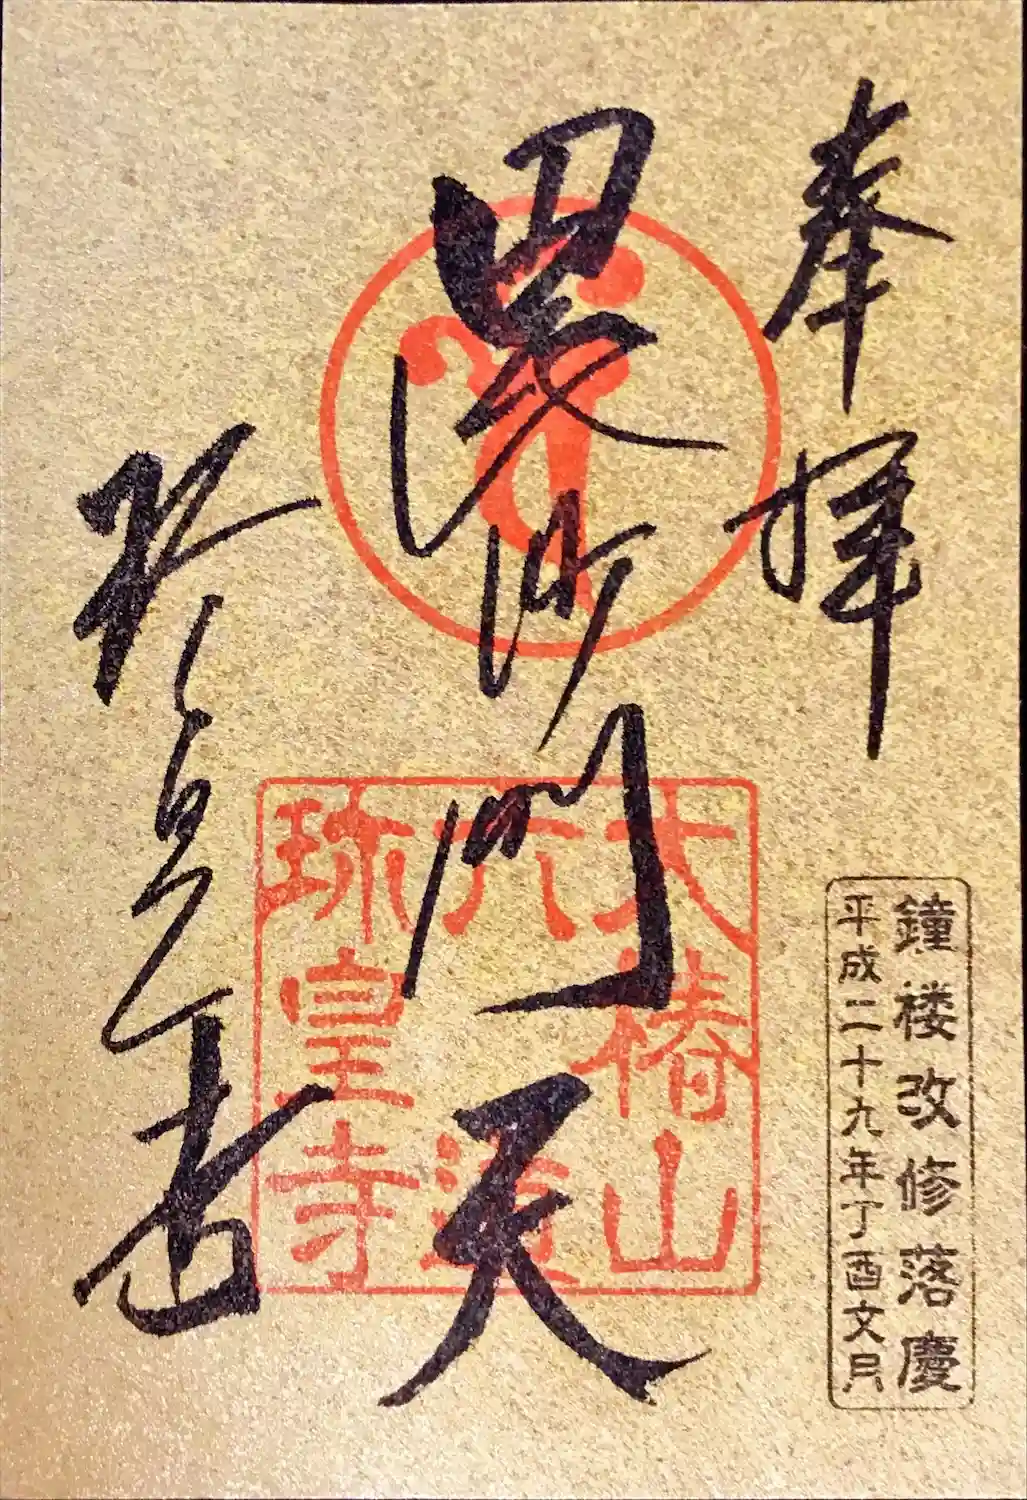 奉拝
毘沙門天
珎皇寺
大椿山
六道
珎皇寺
鐘楼改修落慶
平成二十九年丁酉文月